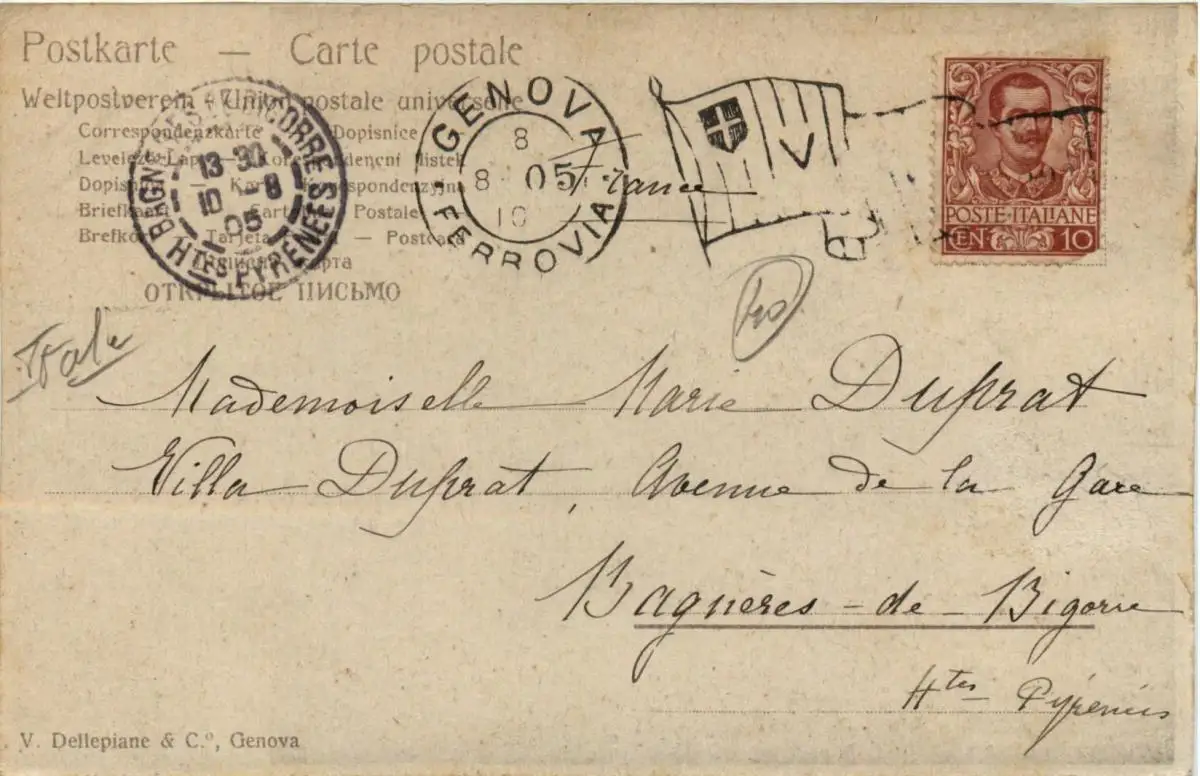 Postkarte — Carte postale
Weltpostverein - Union postale universelle
Correspondenzkarte Dopisnice
Levelező-Lap — Korespondenční lístek
Karta korespondenzyjna
Postale
Tarjeta — Postcard
ОТКРЫТОЕ ПИСЬМО
BAGNERES DE BIGORRE
13 30
10 -8
05
HTES PYRENEES
GENOVA
8
8 05
10
FERROVIA
V
France
POSTE·ITALIANE
CEN 10
Mademoiselle Marie Duprat
Villa Duprat, Avenue de la Gare
Bagnères-de-Bigorre
Htes Pyrénées
V. Dellepiane & C.º, Genova